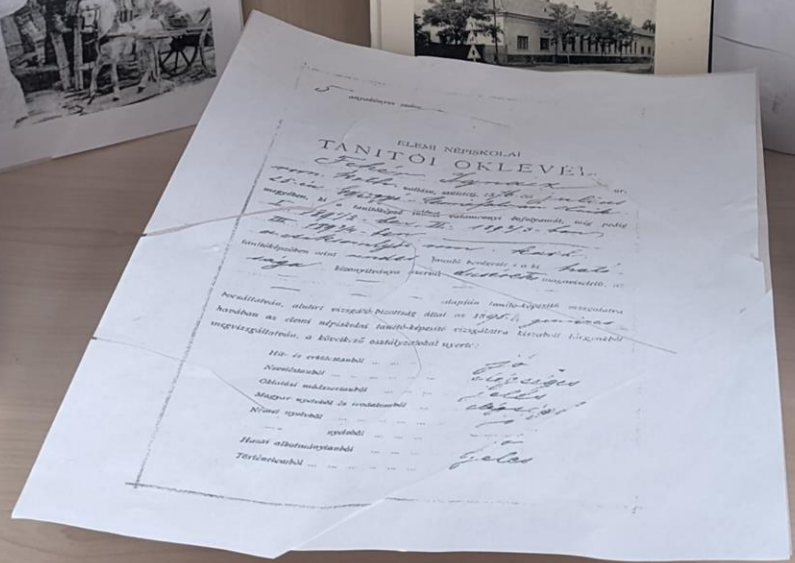 5 anyakönyvi szám
ELEMI NÉPISKOLAI
TANITÓI OKLEVÉL.
Fehér Ignácz úr,
róm. kath. vallású, született 18 julius
25-én
megyében, ki a tanítóképző intézet valamennyi évfolyamát, még pedig
I. 1891/2 ben, II. 1892/3-ban
III. 1893/4-ben róm. kath.
tanítóképzőben mint rendes tanuló bevégezte s a ki ható-
sága bizonyítványa szerint dicséretes magaviseletű, a
alapján tanító-képesítő vizsgálatra
bocsáttatván, alulírt vizsgáló-bizottság által az 1895. junius
havában az elemi népiskolai tanító-képesítő vizsgálatra kiszabott tárgyakból
megvizsgáltatván, a következő osztályzatokat nyerte:
Hit- és erkölcstanból jó
Neveléstanból elégséges
Oktatási módszertanból jeles
Magyar nyelvből és irodalomból elégséges
Német nyelvből
nyelvből
Hazai alkotmánytanból jó
Történelemből jeles